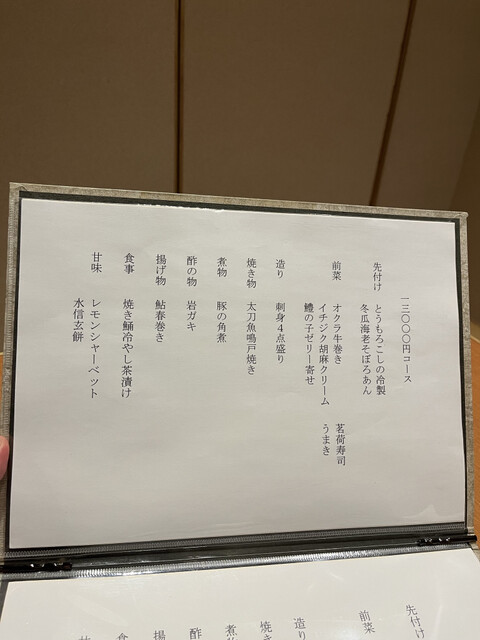 一三〇〇〇円コース
先付け とうもろこしの冷製
冬瓜海老そぼろあん
前菜 オクラ牛巻き 茗荷寿司
イチジク胡麻クリーム うまき
鱧の子ゼリー寄せ
造り 刺身4点盛り
焼き物 太刀魚鳴戸焼き
煮物 豚の角煮
酢の物 岩ガキ
揚げ物 鮎春巻き
食事 焼き鯒冷やし茶漬け
甘味 レモンシャーベット
水信玄餅
先付け
前菜
造り
焼き
煮
酢の
揚
食